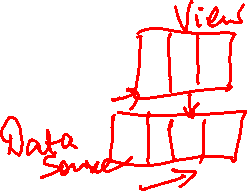 View
Data
Source